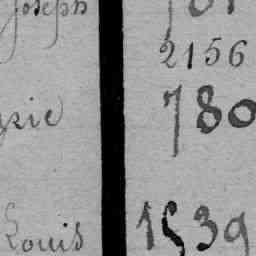 Joseph
2156
780
Louis 1539